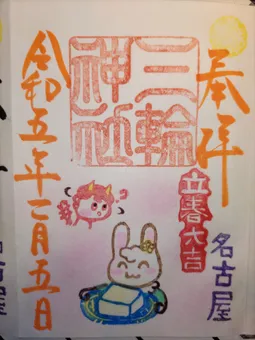 奉拝
立春大吉
名古屋
三輪
神社
令和五年二月五日
古屋